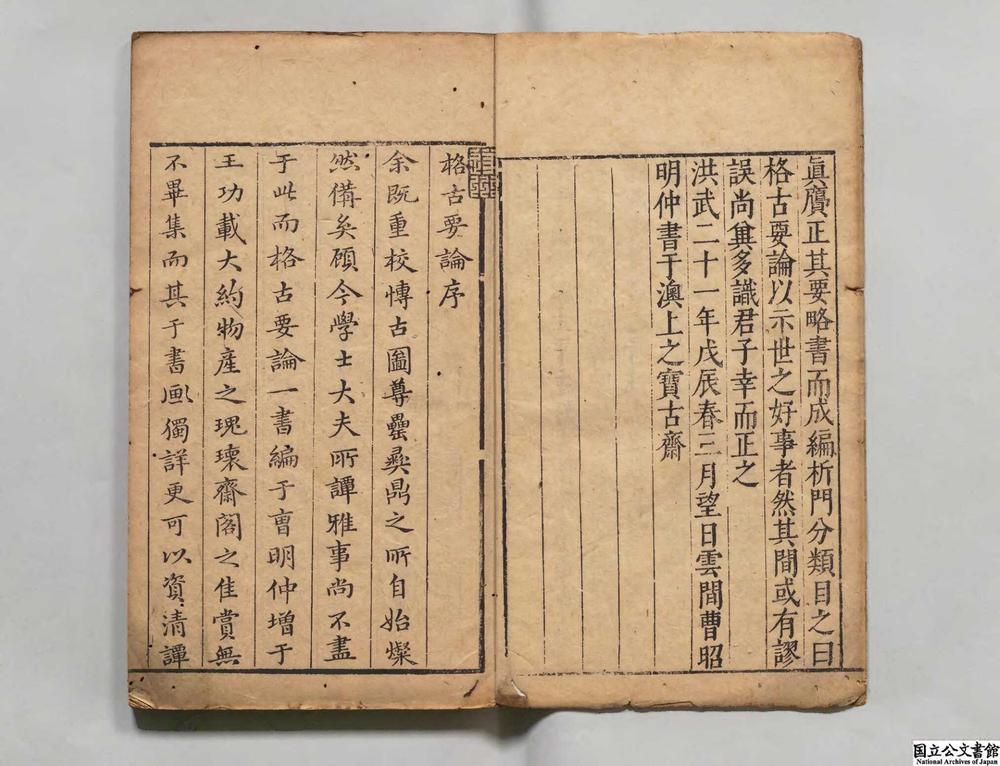 眞贗正其要略書而成編析門分類目之曰
格古要論以示世之好事者然其間或有謬
誤尚兾多識君子幸而正之
洪武二十一年戊辰春三月望日雲間曹昭
明仲書于澳上之寶古齋
格古要論序
余既重校愽古圖尊罍彝鼎之所自始燦
然備矣顧今學士大夫所譚雅事尚不盡
于此而格古要論一書編于曺明仲增于
王功載大約物產之瑰瓌齋閣之佳賞無
不畢集而其于書画獨詳更可以資清譚
国立公文書館
National Archives of Japan